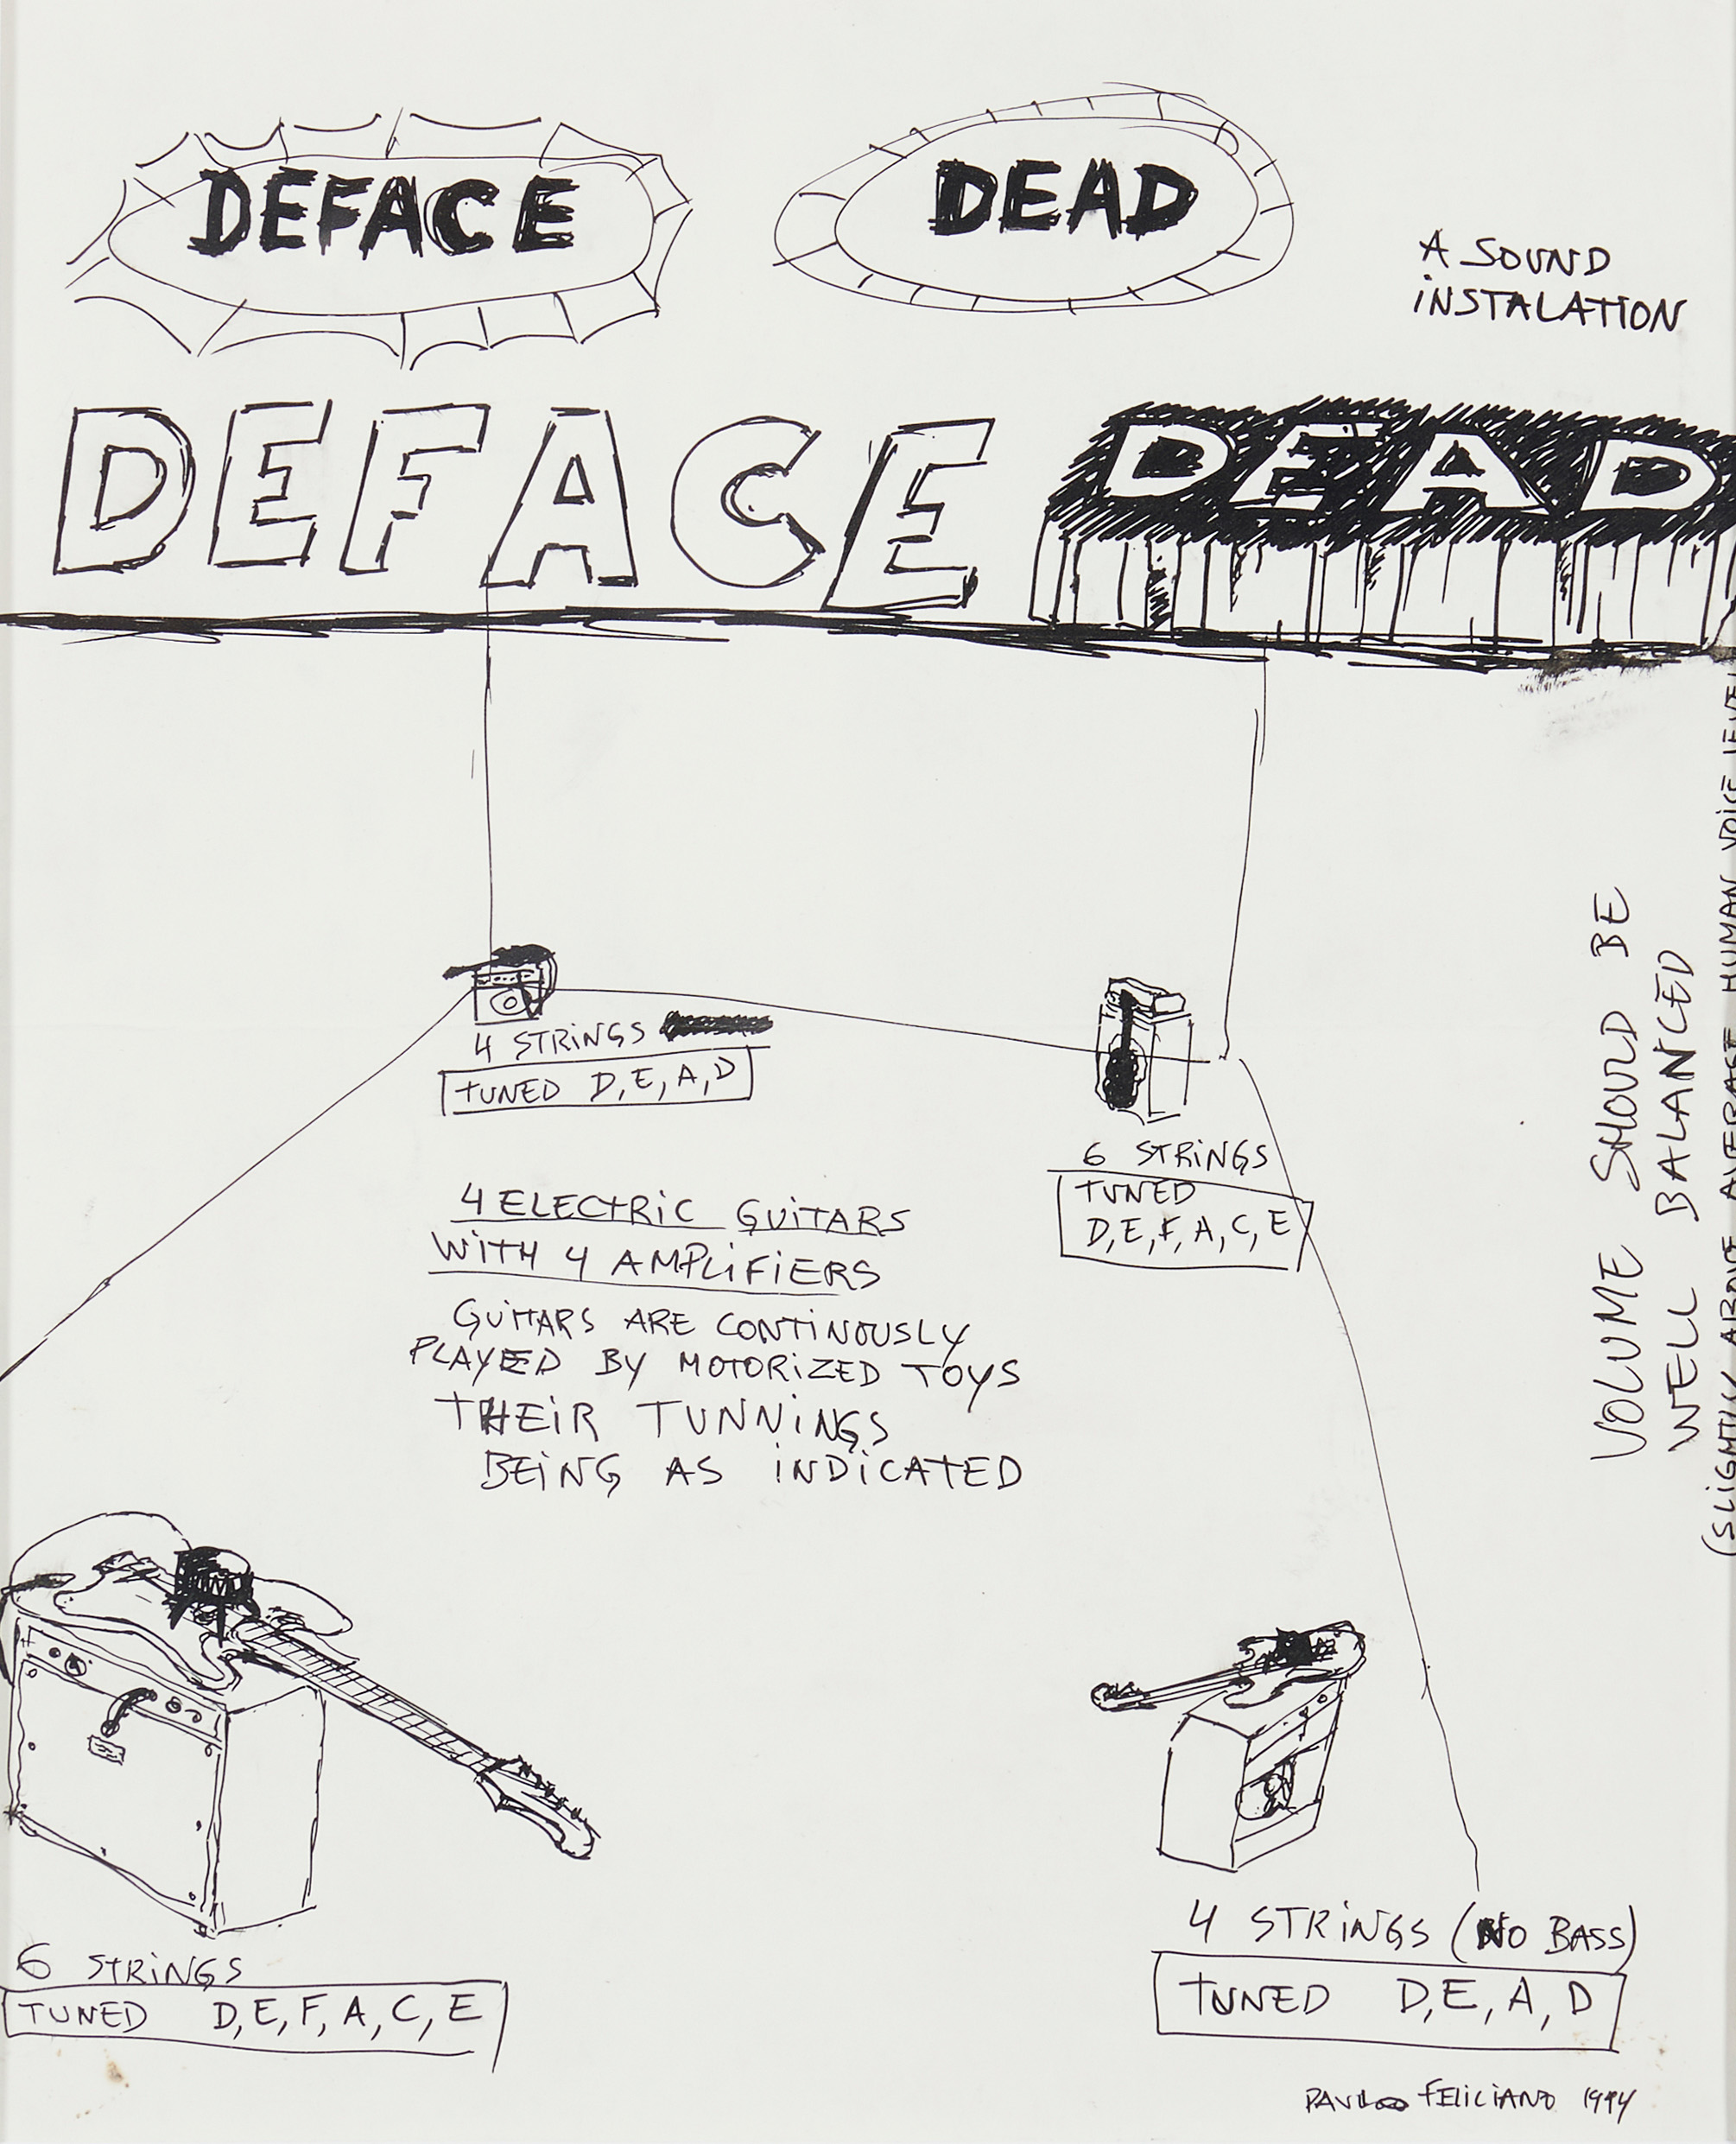 DEFACE DEAD
A SOUND
iNSTALATION
DEFACE DEAD
4 STRiNGS
TUNED D, E, A, D
6 STRiNGS
TUNED
D, E, F, A, C, E
4 ELECTRiC GUiTARS
WiTH 4 AMPLiFiERS
GUiTARS ARE CONTiNOUSLY
PLAYED BY MOTORiZED TOYS
THEiR TUNNiNGS
BEiNG AS iNDiCATED
VOLUME SHOULD BE
WELL BALANCED
(SLiGHTLY ABOVE AVERAGE HUMAN VOiCE LEVEL
6 STRiNGS
TUNED D, E, F, A, C, E
4 STRiNGS (NO BASS)
TUNED D, E, A, D
PAULO FELiCiANO 1994